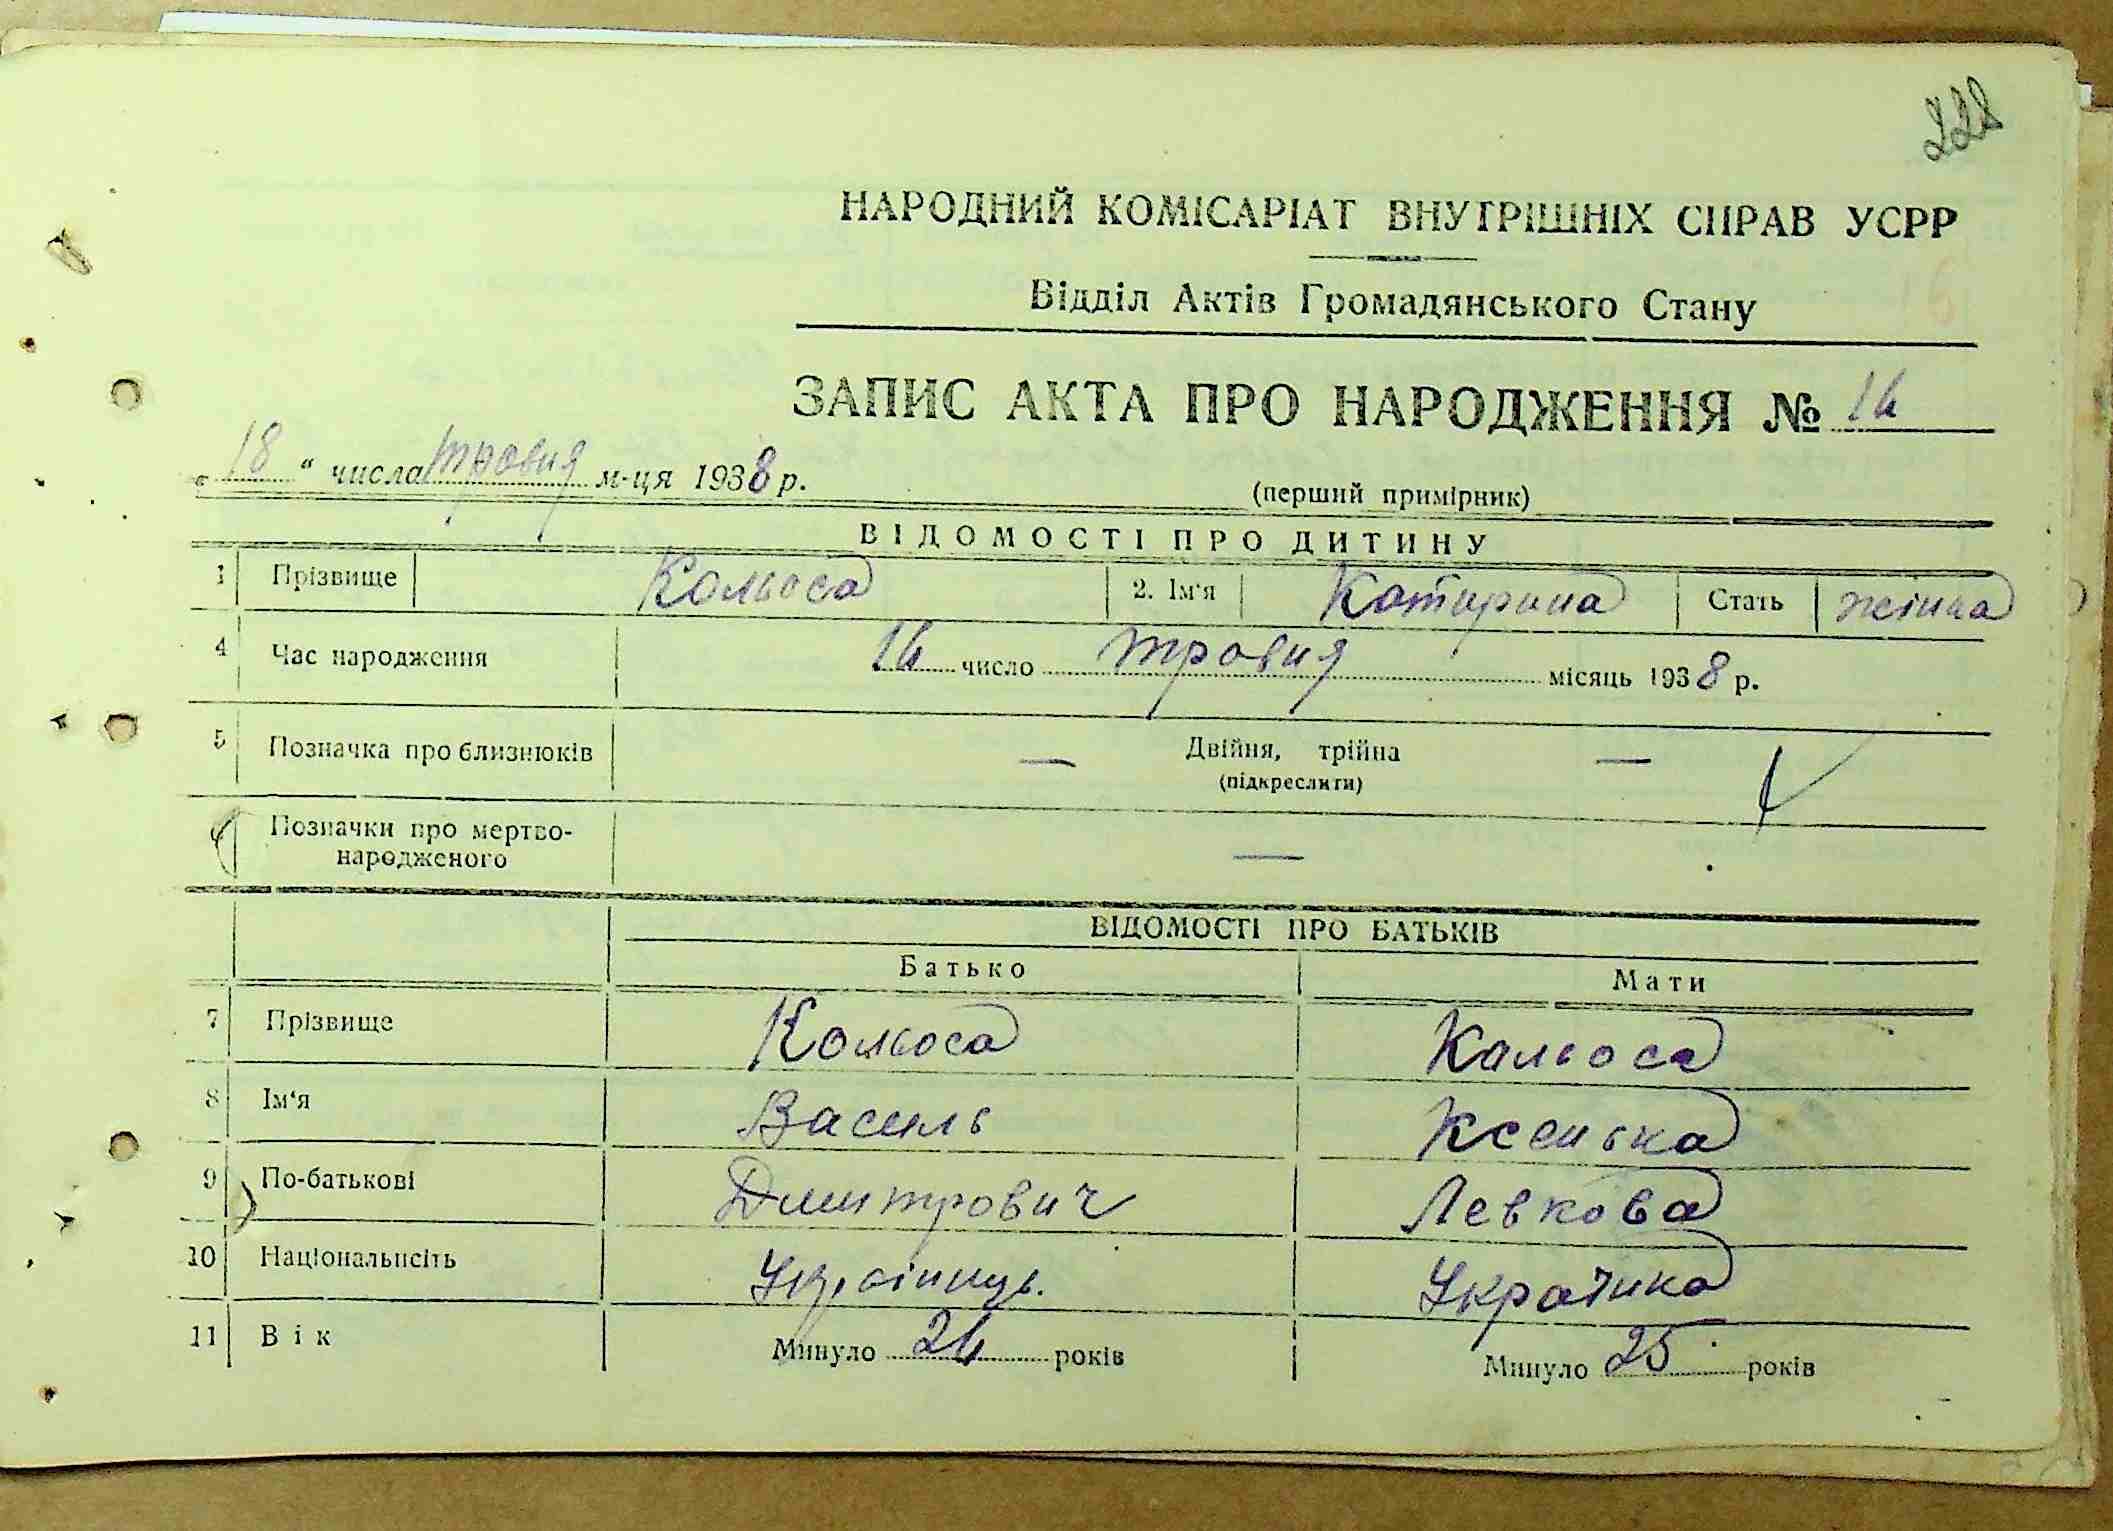 228
НАРОДНИЙ КОМІСАРІАТ ВНУТРІШНІХ СПРАВ УСРР
Відділ Актів Громадянського Стану
ЗАПИС АКТА ПРО НАРОДЖЕННЯ № 14
„ 18 “ числа травня м-ця 1938 р.
(перший примірник)
ВІДОМОСТІ ПРО ДИТИНУ
1 Прізвище Кольоса 2. Ім'я Катирина Стать жінка
4 Час народження 14 число травня місяць 1938 р.
5 Позначка про близнюків — Двійня, трійна —
(підкреслити)
6 Позначки про мертво-
народженого —
ВІДОМОСТІ ПРО БАТЬКІВ
Батько Мати
7 Прізвище Кольоса Кольоса
8 Ім'я Василь Ксенька
9 По-батькові Дмитрович Левкова
10 Національність Українць. Українка
11 Вік Минуло 24 років Минуло 25 років